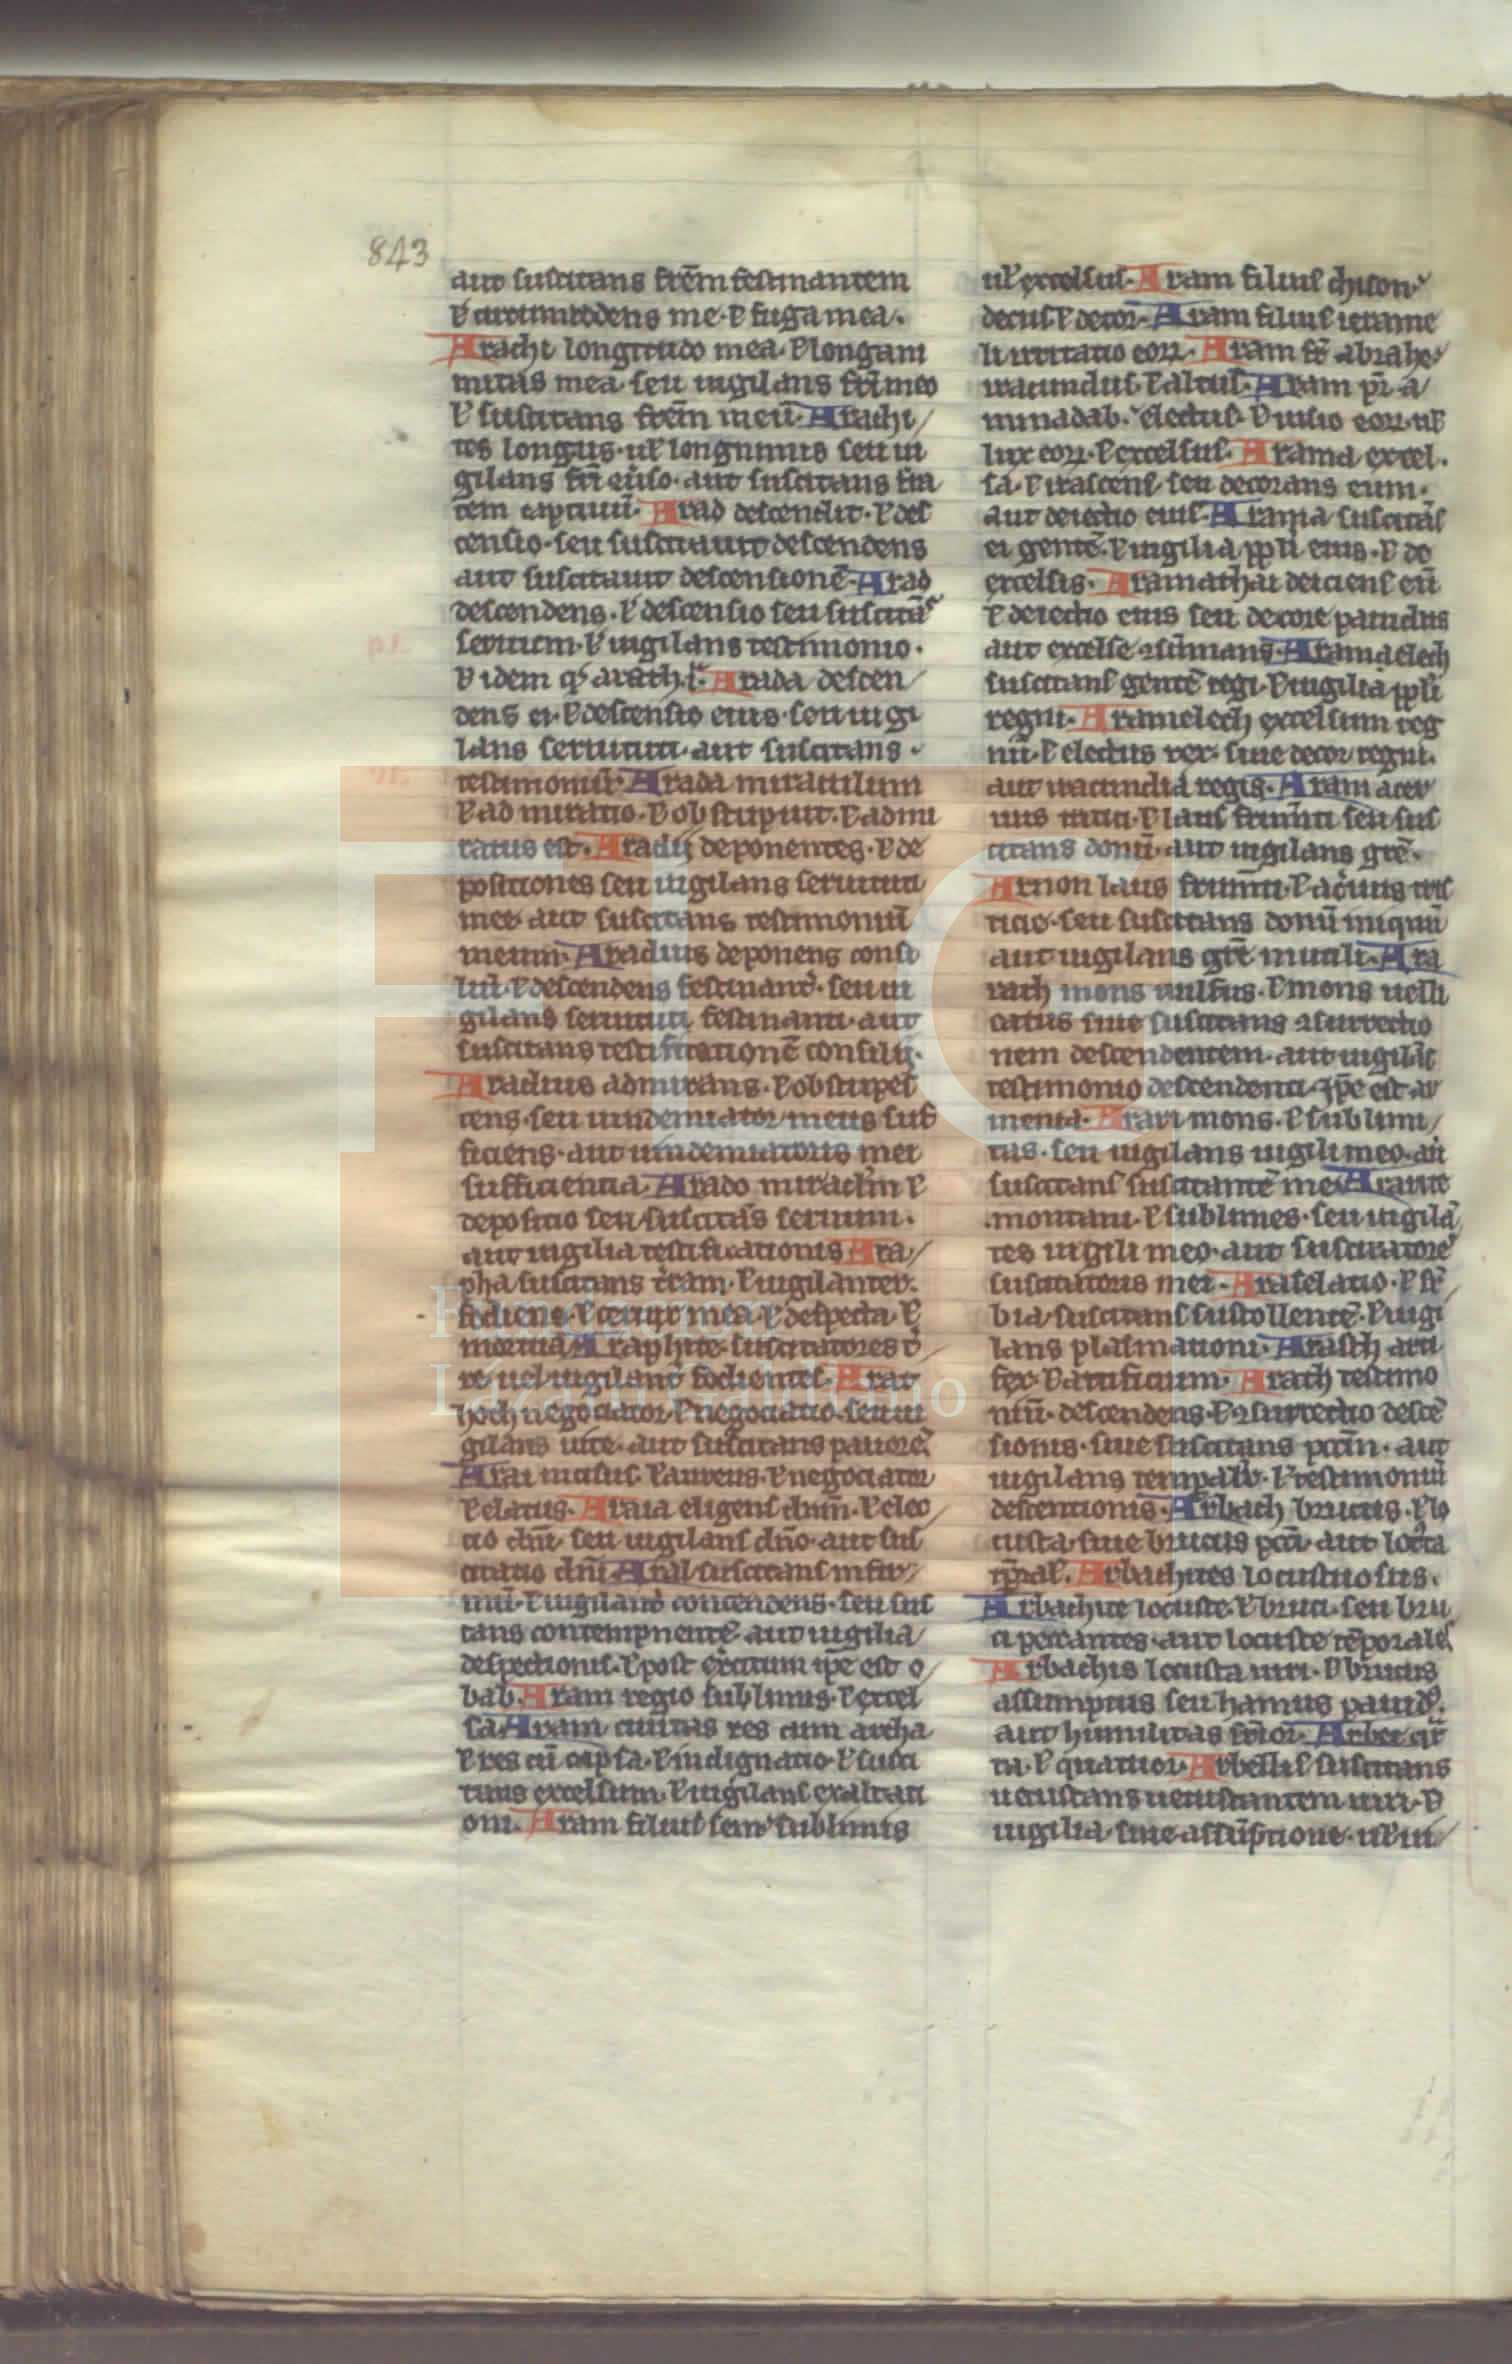 843
aut suscitans frēm festinantem
ł circumcedens me. ł fuga mea.
Arachi longitudo mea. ł longani
mitas mea. seu uigilans fri meo
ł suscitans frēm meū. Arachi
tes longus. ul longinnus seu ui
gilans
aut suscitans fra
tem captiuū. Arad descendit. ł des
censio. seu suscitauit descendens
aut suscitauit descensionē. Arad
descendens. ł descensio seu suscitās
seruum. ł uigilans testimonio.
ł idem
Arada descen
dens ei. ł descensio eius. seu uigi
lans seruituti. aut suscitans
testimonium. Arada miraculum
ł ad miratio. ł obstupuit. ł admi
ratus est. Aradij deponentes. ł de
positiones seu uigilans seruituti
mee. aut suscitans testimoniū
meum. Aradius deponens consi
liū. ł descendens festinant. seu ui
gilans seruituti festinanti. aut
suscitans testificationē consilij.
Aradius admirans. ł obstupes
cens. seu uindemiator meus suf
ficiens. aut uindemiatoris mei
sufficientia. Arado miraclm ł
depositio seu suscitās seruum.
aut uigilia testificationis Ara
pha suscitans tram. ł uigilanter
fodiens. ł
mea. ł despecta. ł
mortua. Araphite suscitatores t
re uel uigilant fodientes. Arat
hoch negociator. ł negociatio. seu ui
gilans uite. aut suscitans pauorē.
Arai incisus. ł aureus. ł negociator
ł elatus. Araia eligens dnm. ł elec
tio dni. seu uigilans dno. aut sus
citatio dni. Aral suscitans infir
mū. ł uigilant contendens. seu sus
tans contempnentē. aut uigilia
despectionis. ł post
ipe est o
bab. Aram regio sublimis. ł excel
sa. Aram ciuitas res cum archa
ł res cū capsa. ł indignatio. ł susci
tans excelsum. ł uigilans exaltati
oni. Aram filius sem sublimis
ul excelsus. Aram filius
decus ł decor. Aram filius
li irritatio eorr. Aram fr abrahe
iracundus. ł altus. Aram pr a
minadab. electus. ł uisio eorr. ul
lux eorr. ł excelsus. Arama excel.
sa. ł irascens. seu decorans eum.
aut deiectio eius. Arama suscitās
ei gentē. ł uigilia ppli eius. ł de
excelsis. Aramathai deiciens eū
ł deiectio eius seu decore paucius
aut excelse
Aramelech
suscitans gentē regi. ł uigilia ppli
regni. Aramelech excelsum reg
nū. ł electus rex. siue decor regni.
aut iracundia regis. Aram acer
uus
ł laus
seu sus
citans donū. aut uigilans
Arnon laus
ł
ticie. seu suscitans donū iniquū
aut uigilans
inutili. Ara
rath mons uulsus. ł mons uelli
catus siue suscitans
nem descendentem. aut uigilās
testimonio descendenti.
est ar
menia. Arari mons. ł sublimi
tas. seu uigilans uigili meo. aū
suscitans suscitantē me. Ararite
montani. ł sublimes. seu uigilā
tes uigili meo. aut suscitatorē
suscitatoris mei. Araselatio. ł
bia. suscitans sustollentē. ł uigi
lans plasmationi. Arasch arti
fex. ł artificium. Arath testimo
niū. descendens. ł
descē
sionis. siue suscitans
aut
uigilans
ł testimoniū
descensionis. Arbach brucus. ł lo
custa. siue brucus
aut locta
Arbachites locustuosus.
Arbachite locuste. ł bruci. seu bru
ci peccantes. aut locuste tēporales
Arbachis locusta uiri. ł brucus
assumptus seu hamus
aut humilitas
Arbee
ta. ł quatuor. Arbellis suscitans
uetustans uetustantem uiri. ł
uigilia. siue assūptione. ul ui
FLG
Lázaro Galdiano